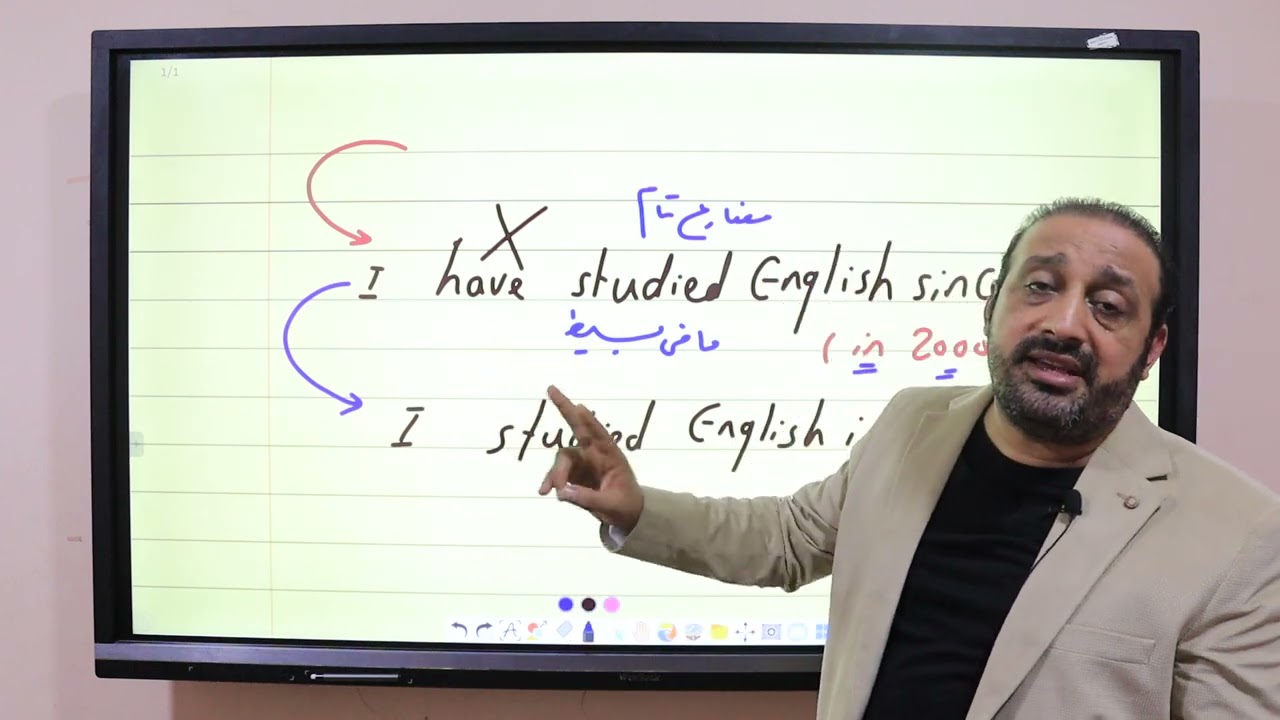 1/1
X
مضارع تام
I have studied English sinc
ماضي بسيط
( in 2000
I studied English i
ViewSonic